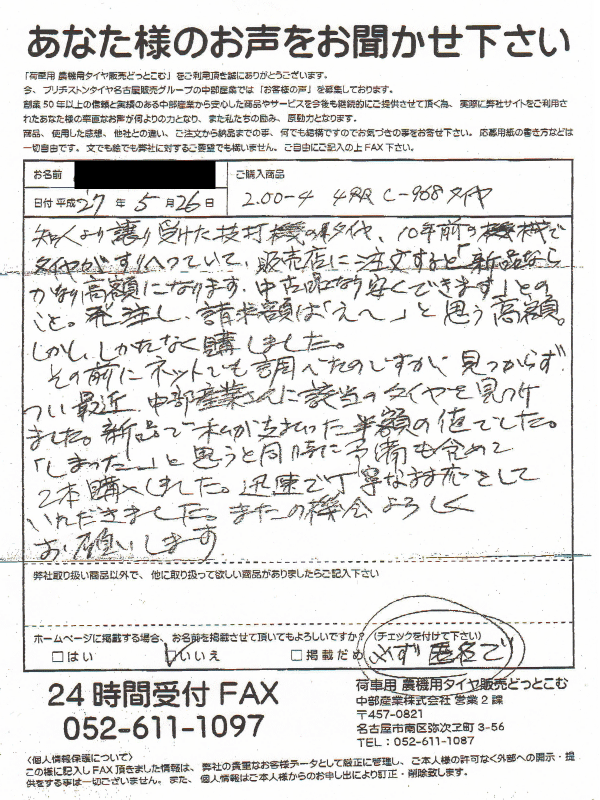 あなた様のお声をお聞かせ下さい
「荷車用 農機用タイヤ販売どっとこむ」をご利用頂き誠にありがとうございます。
今、ブリヂストンタイヤ名古屋販売グループの中部産業では「お客様の声」を募集しております。
創業50年以上の信頼と実績のある中部産業から安心した商品やサービスを今後も継続的にご提供させて頂く為、実際に弊社サイトをご利用さ
れたあなた様の率直なお声が何よりの力となり、また私たちの励み、原動力となります。
商品、使用した感想、他社との違い、ご注文から納品までの事、何でも結構ですのでお気づきの事をお寄せ下さい。応募用紙の書き方などは
一切自由です。文でも絵でも弊社に対するご要望でも構いません。ご自由にご記入の上FAX下さい。
お名前
ご購入商品
日付 平成27年5月26日
2.00-4 4PR C-968 タイヤ
知人より譲り受けた枝打機のタイヤ、10年前の機械で
タイヤがすりへっていて、販売店に注文すると「新品なら
かなり高額になります。中古品なら安くできます」との
こと。発注し、請求額は「え〜」と思う高額。
しかし、しかたなく購しました。
その前にネットでも調べたのですが、見つからず、
つい最近、中部産業さんに該当のタイヤを見つけ
ました。新品で私が支払った半額の値でした。
「しまった」と思うと同時に予備も含めて
2本購入しました。迅速で丁寧な対応をして
いただきました。またの機会よろしく
お願いします
弊社取り扱い商品以外で、他に取り扱って欲しい商品がありましたらご記入下さい
ホームページに掲載する場合、お名前を掲載させて頂いてもよろしいですか?(チェックを付けて下さい)
□はい ☑いいえ □掲載だめ 必ず匿名で
24時間受付FAX
052-611-1097
荷車用 農機用タイヤ販売どっとこむ
中部産業株式会社 営業2課
〒457-0821
名古屋市南区弥次ヱ町3-56
TEL:052-611-1087
〈個人情報保護について〉
この様に記入しFAX頂きました情報は、弊社の貴重なお客様データとして厳正に管理し、ご本人様の許可なく外部への開示・提
供をする事は一切ございません。また、個人情報はご本人様からのお申し出により訂正・削除致します。